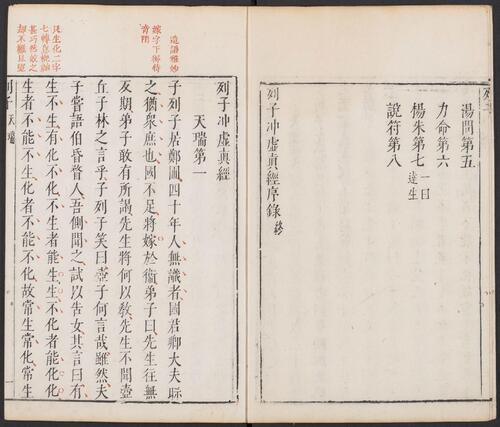 湯問第五
力命第六
楊朱第七 一曰達生
說符第八
列子冲虛真經序錄 終
列子冲虛真經
天瑞第一
造語雅妙
嫁字下得特
子列子居鄭圃四十年人無識者國君卿大夫眎
之猶衆庶也國不足將嫁於衛弟子曰先生往無
反期弟子敢有所謁先生將何以教先生不聞壺
丘子林之言乎子列子笑曰壺子何言哉雖然夫
子嘗語伯昏瞀人吾側聞之試以告女其言曰有
只生化二字
甚巧然
生不生有化不化不生者能生生不化者能化化
生者不能不生化者不能不化故常生常化常生
列子 天瑞 一